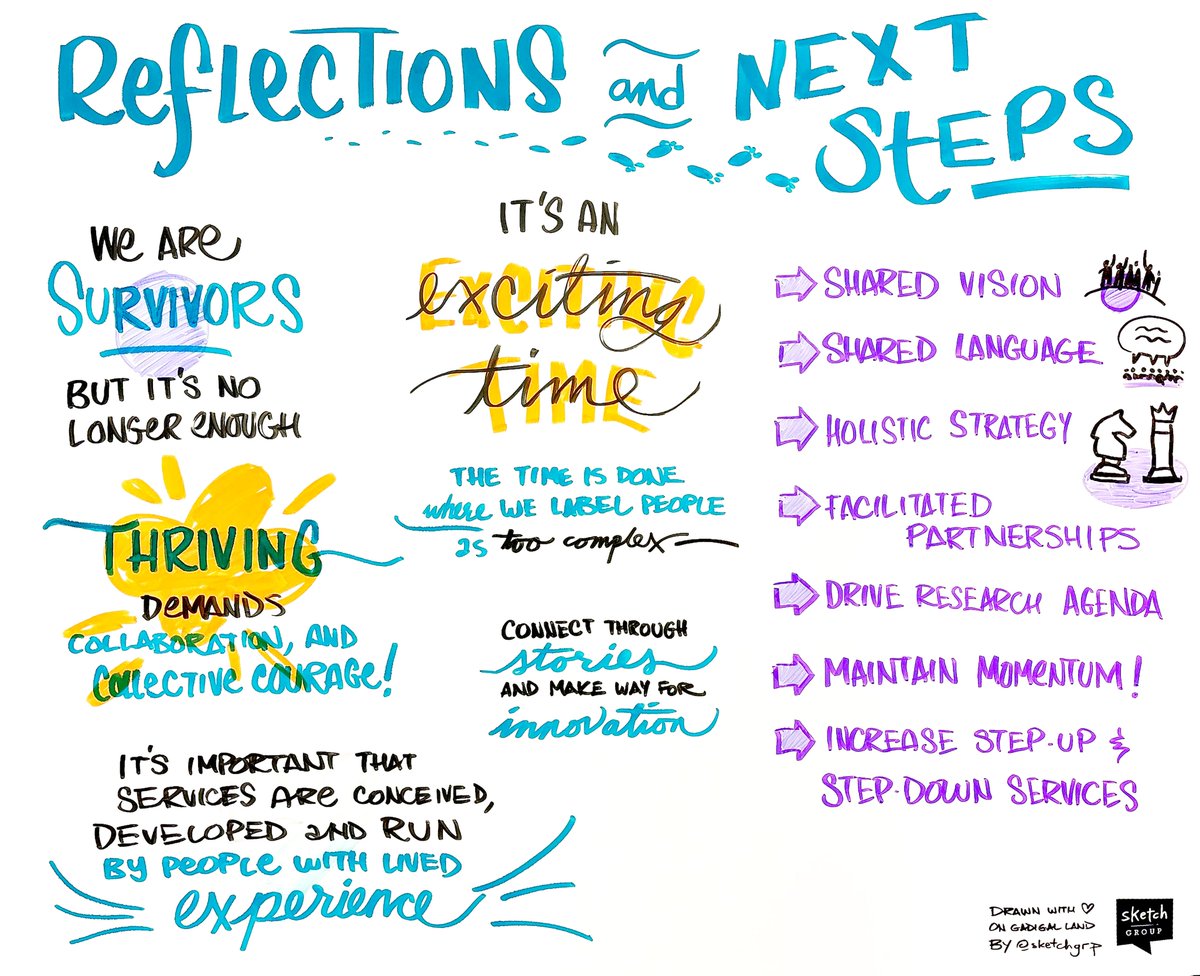 ReflecTIONS and NEXT STEPS
We ARe
SURVIVORS
BUT IT'S NO
LONGER eNOUGH
THRIVING
DeMANDS
COLLABORATION, AND
COLLeCTIVE COURAGE!
IT'S IMPORTANT THAT
SERVICES ARe CONCEIVED,
DEVELOPED aND RUN
BY PEOPLe WITH LIVED
experience
IT'S AN
exciting
EXCITING
time
TIME
THE TIME IS DONE
where WE LABEL PEOPLE
as too complex
CONNECT THROUGH
stories
AND MAKE WAY FOR
innovation
SHARED VISION
SHARED LANGUAGE
HOLISTIC STRATEGY
FACILITATED
PARTNERSHIPS
DRIVE RESEARCH AGENDA
MAINTAIN MOMENTUM!
INCREASE STEP-UP &
STEP-DOWN SERVICES
DRAWN WITH ♡
ON GADIGAL LAND
BY @sketchgrp
sketch
GROUP